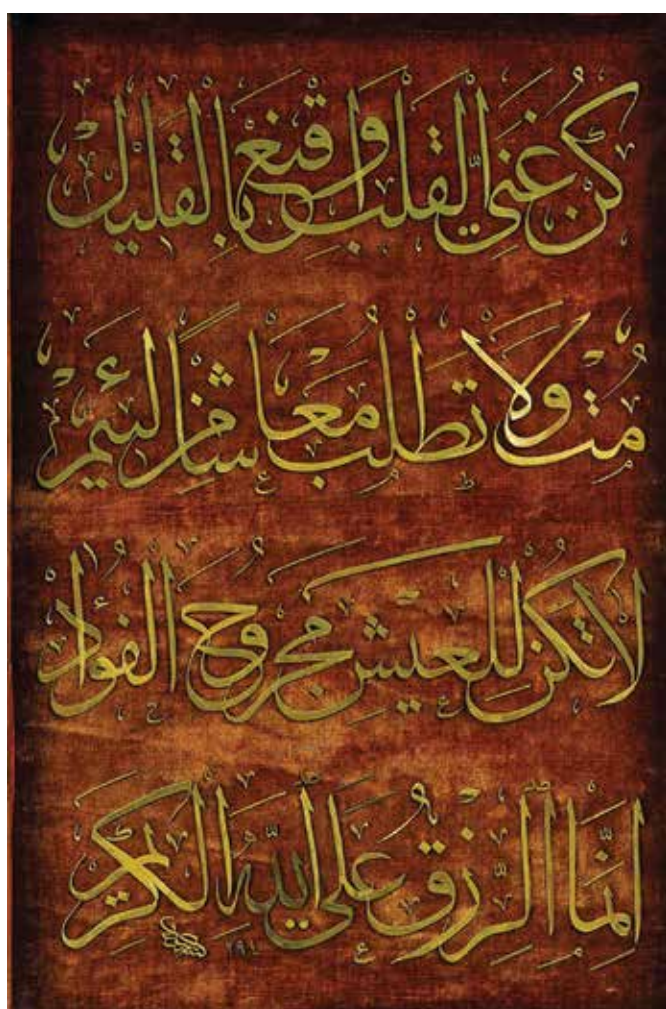 كُن غَنِيَّ القَلبِ وَاقنَع بِالقَلِيل
مُت وَلَا تَطلُب مَعَاشاً مِن لَئِيم
لَا تَكُن لِلعَيشِ مَجرُوحَ الفُؤَاد
إِنَّمَا الرِّزقُ عَلَى اللهِ الكَرِيم